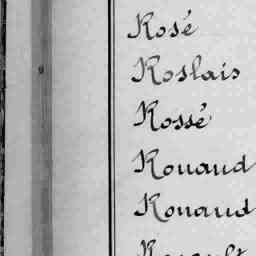 Rosé
Roslais
Rossé
Rouaud
Rouaud